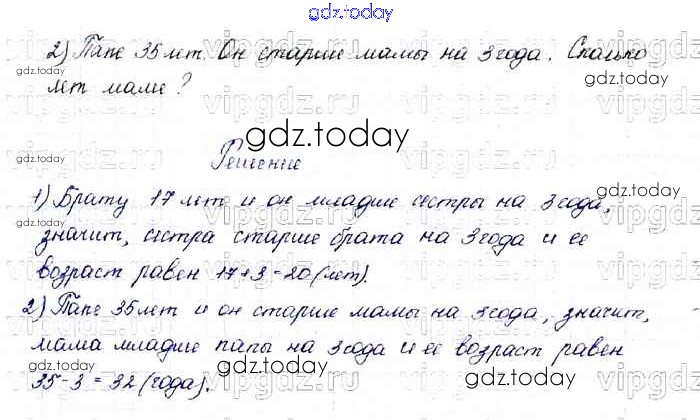 gdz.today
2) Папе 35 лет. Он старше мамы на 3 года. Сколько
gdz.today
лет маме?
vipgdz.ru
gdz.today
Решение
gdz.today
1) Брату 17 лет и он младше сестры на 3 года,
значит, сестра старше брата на 3 года и ее
возраст равен 17+3=20 (лет).
2) Папе 35 лет и он старше мамы на 3 года, значит,
мама младше папы на 3 года и ее возраст равен
35-3=32 (года).
gdz.today
gdz.today